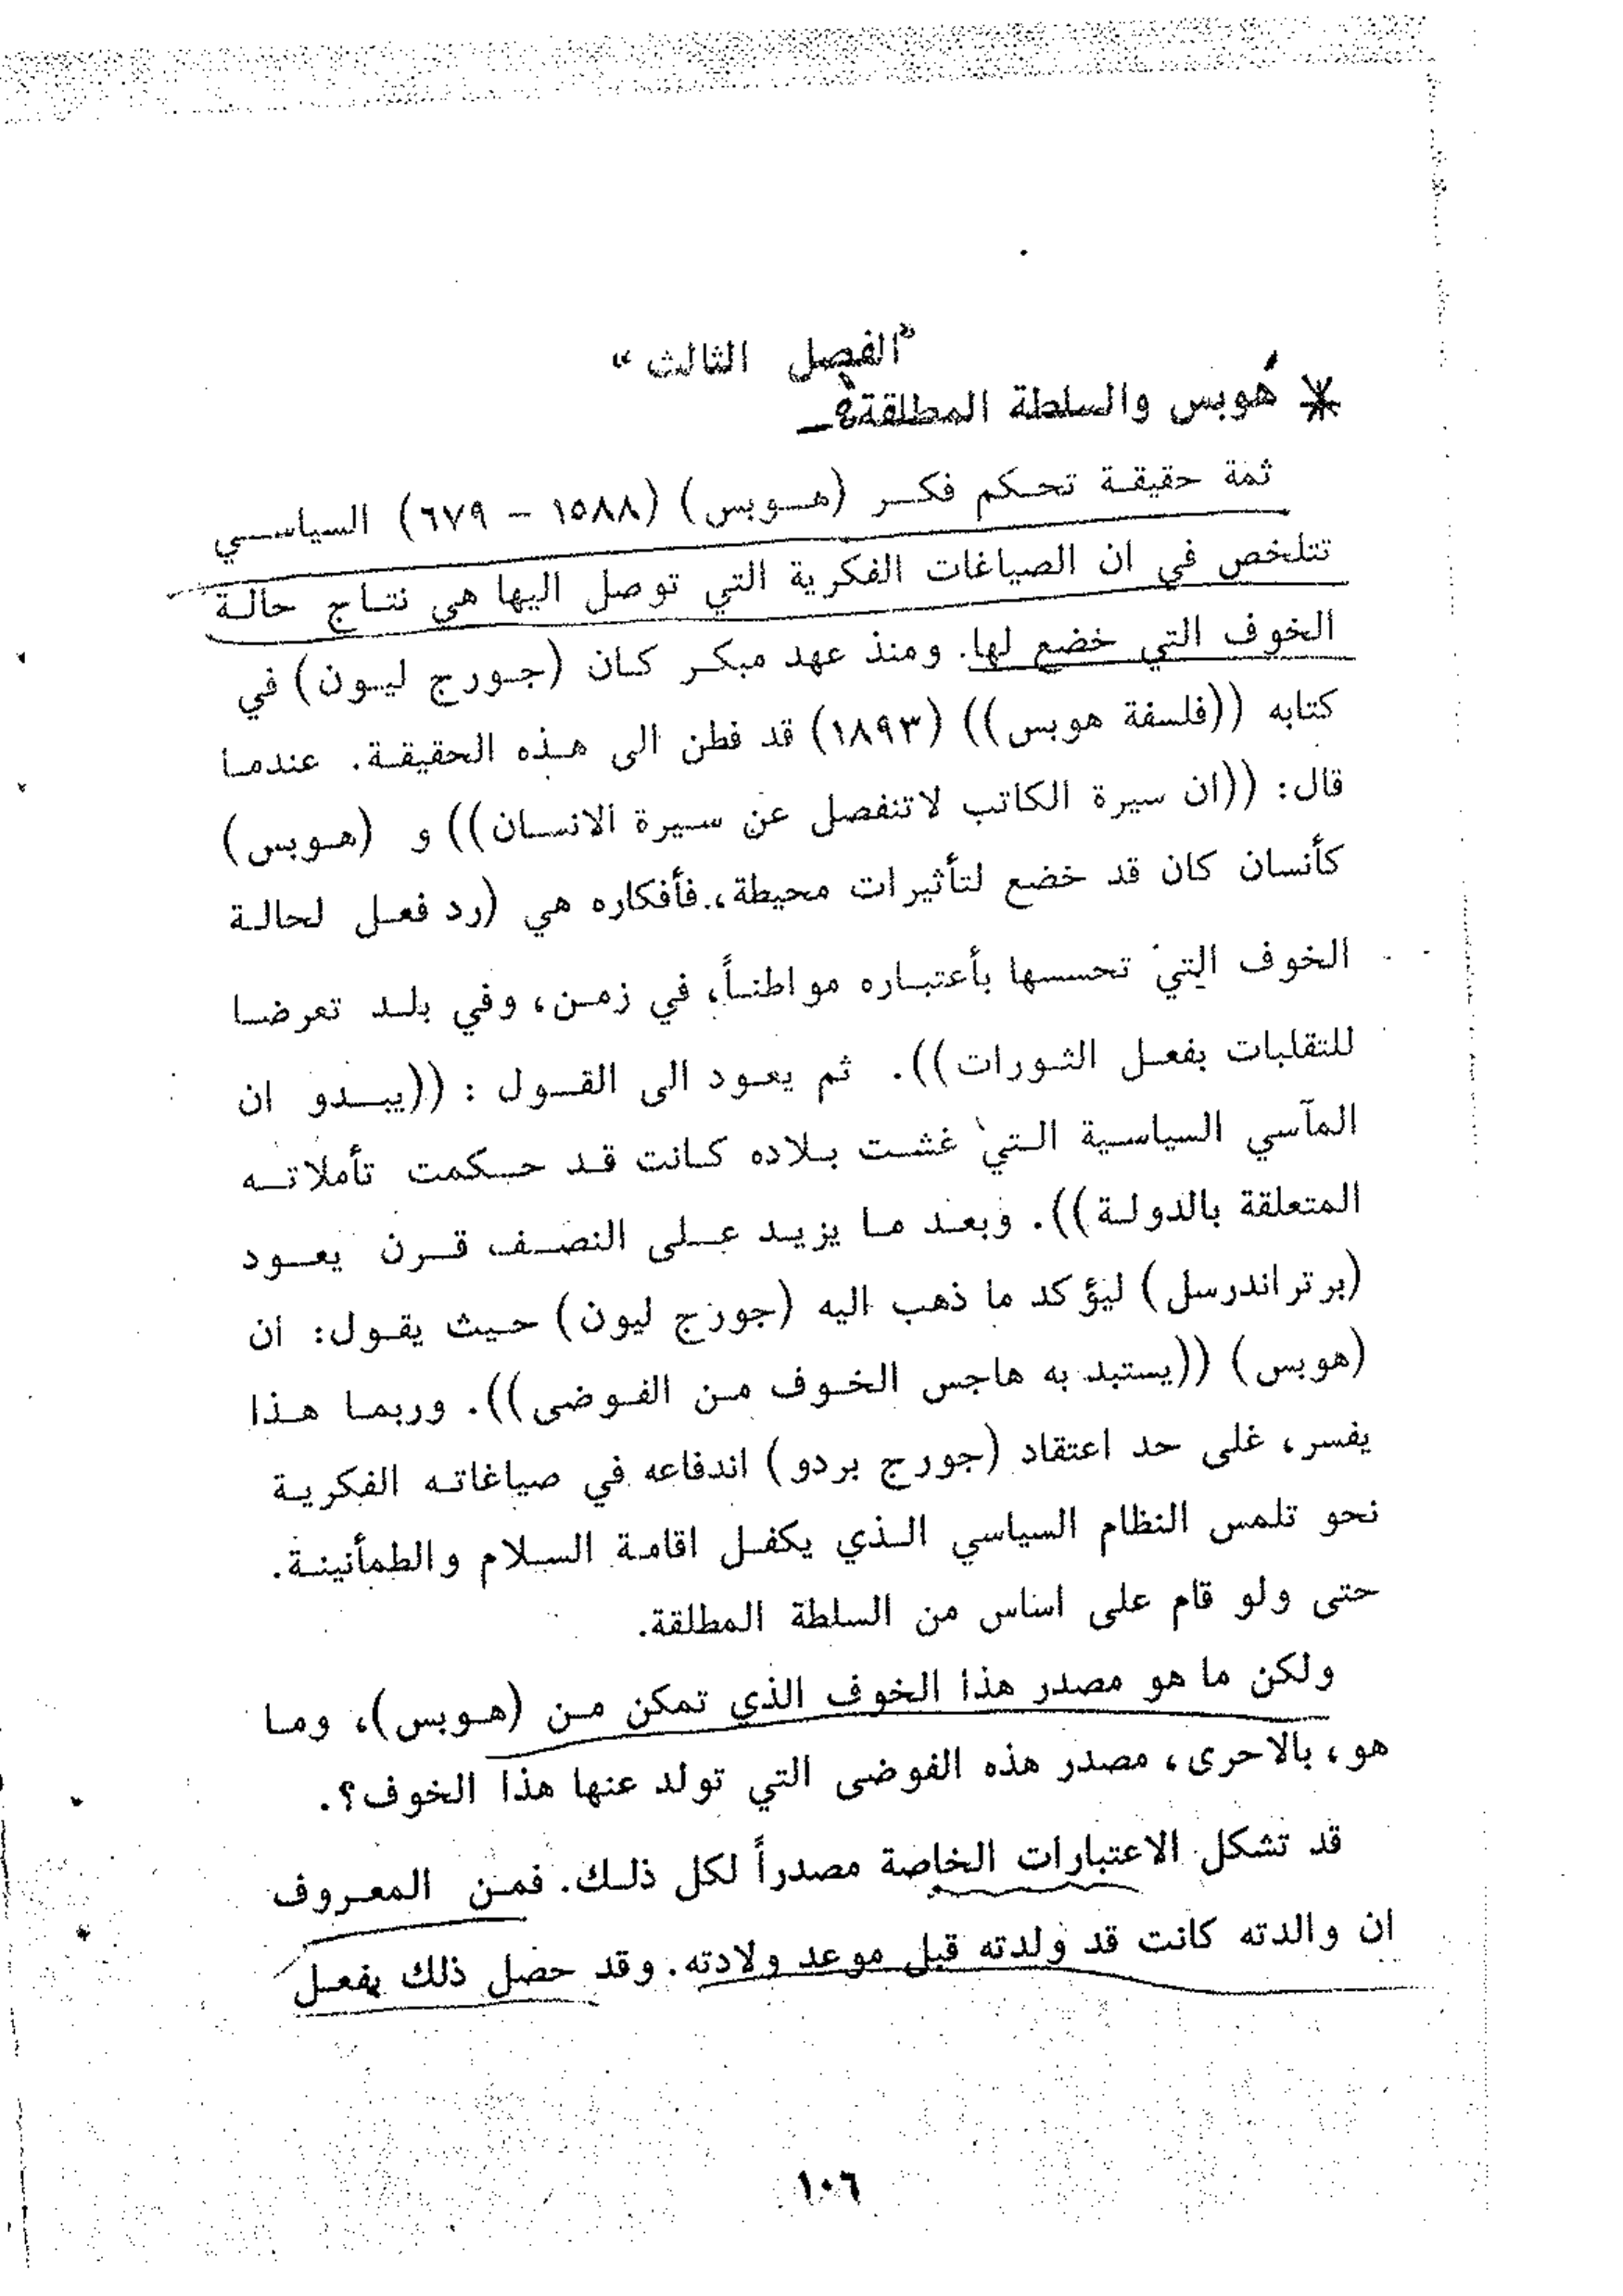 "الفصل الثالث"
هوبس والسلطة المطلقة:ـ
ثمة حقيقة تحكم فكر (هوبس) (١٥٨٨ - ٦٧٩) السياسي
تتلخص في ان الصياغات الفكرية التي توصل اليها هي نتاج حالة
الخوف التي خضع لها. ومنذ عهد مبكر كان (جورج ليون) في
كتابه ((فلسفة هوبس)) (١٨٩٣) قد فطن الى هذه الحقيقة. عندما
قال: ((ان سيرة الكاتب لاتنفصل عن سيرة الانسان)) و (هوبس)
كأنسان كان قد خضع لتأثيرات محيطة، فأفكاره هي (رد فعل لحالة
الخوف التي تحسسها بأعتباره مواطناً، في زمن، وفي بلد تعرضا
للتقلبات بفعل الثورات)). ثم يعود الى القول : ((يبدو ان
المآسي السياسية التي غشت بلاده كانت قد حكمت تأملاته
المتعلقة بالدولة)). وبعد ما يزيد على النصف قرن يعود
(برتراندرسل) ليؤكد ما ذهب اليه (جورج ليون) حيث يقول: ان
(هوبس) ((يستبد به هاجس الخوف من الفوضى)). وربما هذا
يفسر، على حد اعتقاد (جورج بردو) اندفاعه في صياغاته الفكرية
نحو تلمس النظام السياسي الذي يكفل اقامة السلام والطمأنينة.
حتى ولو قام على اساس من السلطة المطلقة.
ولكن ما هو مصدر هذا الخوف الذي تمكن من (هوبس)، وما
هو، بالاحرى، مصدر هذه الفوضى التي تولد عنها هذا الخوف؟.
قد تشكل الاعتبارات الخاصة مصدراً لكل ذلك. فمن المعروف
ان والدته كانت قد ولدته قبل موعد ولادته. وقد حصل ذلك بفعل
١٠٦